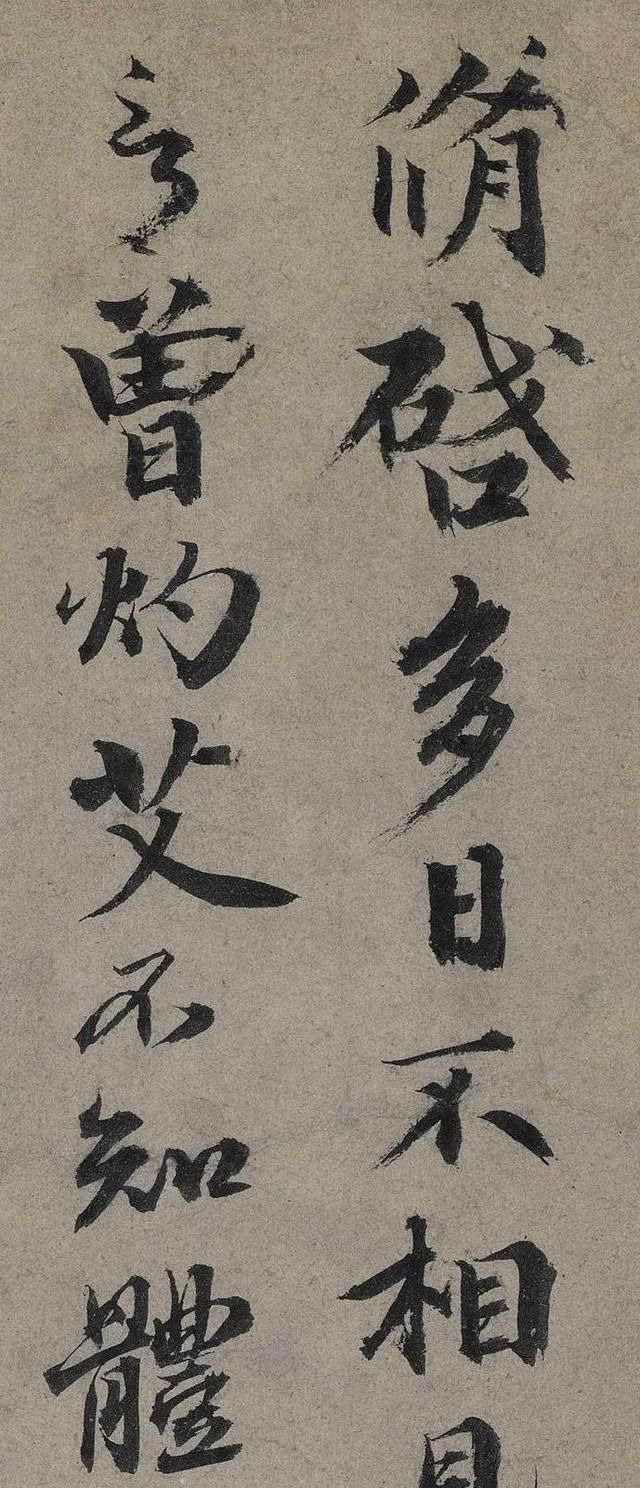 脩啓多日不相見
言曾灼艾不知體